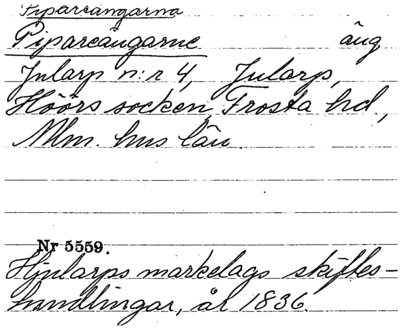 Pipareängarna
Pipareängarne äng
Jularp n:r 4, Jularp,
Höörs socken, Frosta hd.,
Mlm. hus län.
Nr 5559.
Hjularps markelags skiftes-
handlingar, år 1836.